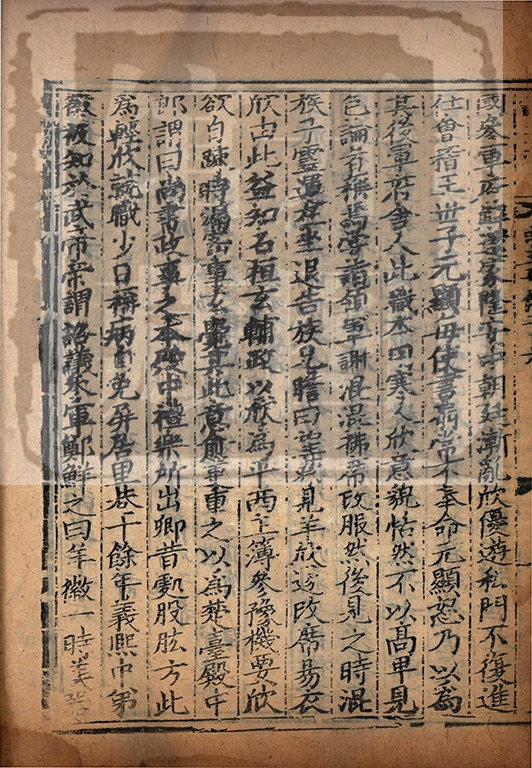 國參軍府解還家隆安中朝廷漸亂欣優遊私門不復進
仕會稽王世子元顯每使書扇常不奉命元顯怒乃以為
其後軍府舍人此職本用寒人欣意貌恬然不以高卑見
色論者稱焉嘗詣領軍謝混混拂席改服然後見之時混
族子靈運在坐退告族兄瞻曰望蔡見羊欣遂改席易衣
欣由此益知名桓玄輔政以欣為平西主簿參豫機要欣
欲自疎時漏密事玄覺其此意愈更重之以為楚臺殿中
郎謂曰尚書政事之本殿中禮樂所出卿昔處股肱方此
為輕欣就職少日稱病自免屏居里巷十餘年義熙中第
徽被知於武帝帝謂諮議參軍鄭鮮之曰羊徽一時美器